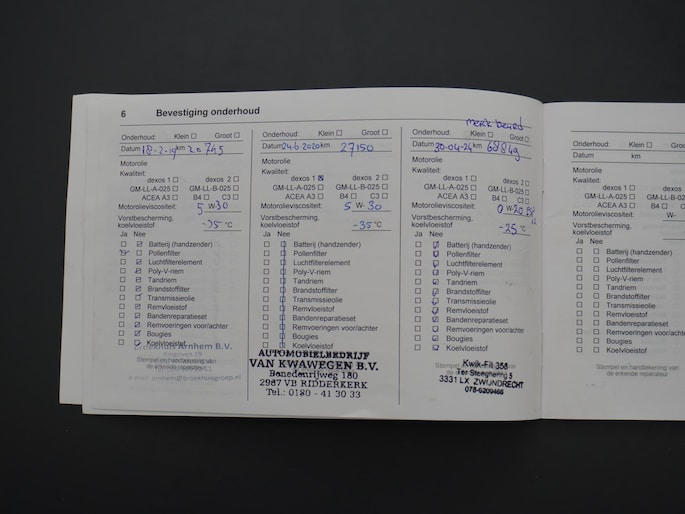 6 Bevestiging onderhoud
Onderhoud: Klein ☐ Groot ☐
Datum 18-2-19 km 20745
Motorolie
Kwaliteit:
dexos 1 ☐ dexos 2 ☐
GM-LL-A-025 ☐ GM-LL-B-025 ☐
ACEA A3 ☐ B4 ☐ C3 ☐
Motorolieviscositeit: 5 W- 30
Vorstbescherming,
koelvloeistof -35 °C
Ja Nee
Batterij (handzender)
Pollenfilter
Luchtfilterelement
Poly-V-riem
Tandriem
Brandstoffilter
Transmissieolie
Remvloeistof
Bandenreparatieset
Remvoeringen voor/achter
Bougies
Koelvloeistof
Broekhuis Arnhem B.V.
Stempel en handtekening van
de erkende reparateur
Onderhoud: Klein ☐ Groot ☐
Datum 24-6-2020 km 27150
Motorolie
Kwaliteit:
dexos 1 ☒ dexos 2 ☐
GM-LL-A-025 ☐ GM-LL-B-025 ☐
ACEA A3 ☐ B4 ☐ C3 ☐
Motorolieviscositeit: 5 W- 30
Vorstbescherming,
koelvloeistof -35 °C
Ja Nee
Batterij (handzender)
Pollenfilter
Luchtfilterelement
Poly-V-riem
Tandriem
Brandstoffilter
Transmissieolie
Remvloeistof
Bandenreparatieset
Remvoeringen voor/achter
Bougies
Koelvloeistof
AUTOMOBIELBEDRIJF
VAN KWAWEGEN B.V.
Benedenrijweg 180
2987 VB RIDDERKERK
Tel.: 0180 - 41 30 33
Merk beurt
Onderhoud: Klein ☐ Groot ☐
Datum 30-04-24 km 68849
Motorolie
Kwaliteit:
dexos 1 ☐ dexos 2 ☐
GM-LL-A-025 ☐ GM-LL-B-025 ☐
ACEA A3 ☐ B4 ☐ C3 ☐
Motorolieviscositeit: 0 W- 20
Vorstbescherming,
koelvloeistof -25 °C
Ja Nee
Batterij (handzender)
Pollenfilter
Luchtfilterelement
Poly-V-riem
Tandriem
Brandstoffilter
Transmissieolie
Remvloeistof
Bandenreparatieset
Remvoeringen voor/achter
Bougies
Koelvloeistof
Kwik-Fit 358
Ter Steeghe ring 5
3331 LX ZWIJNDRECHT
078-6209466
Onderhoud: Klein ☐ Groot ☐
Datum km
Motorolie
Kwaliteit:
dexos 1 ☐
GM-LL-A-025 ☐ GM-LL-B
ACEA A3 ☐ B4 ☐
Motorolieviscositeit: W-
Vorstbescherming,
koelvloeistof
Ja Nee
Batterij (handzender)
Pollenfilter
Luchtfilterelement
Poly-V-riem
Tandriem
Brandstoffilter
Transmissieolie
Remvloeistof
Bandenreparatieset
Remvoeringen voor/achter
Bougies
Koelvloeistof
Stempel en handtekening van
de erkende reparateur